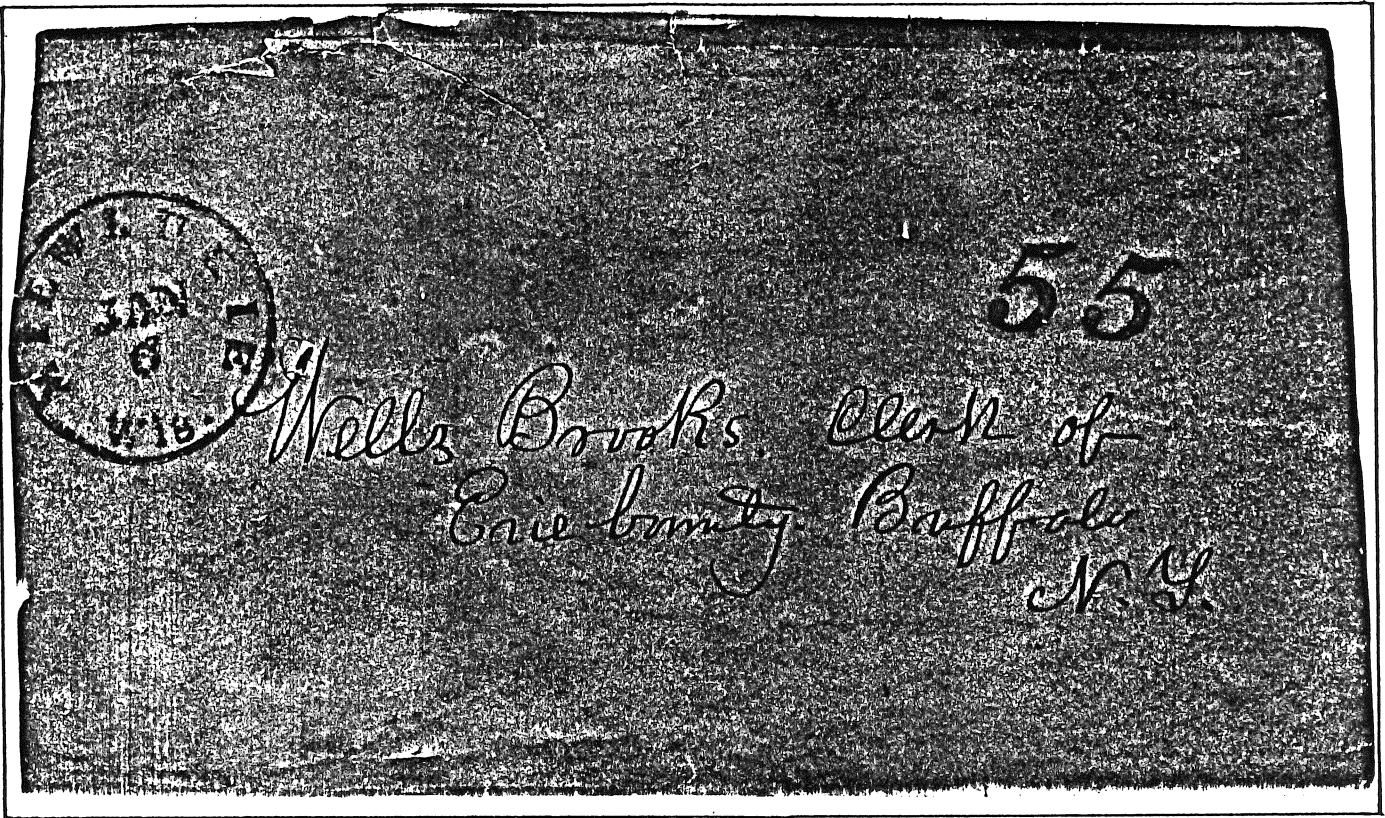 MILWAUKIE
JAN
6
Wis.
55
Wells Brooks. Clerk of
Erie County. Buffalo
N. Y.